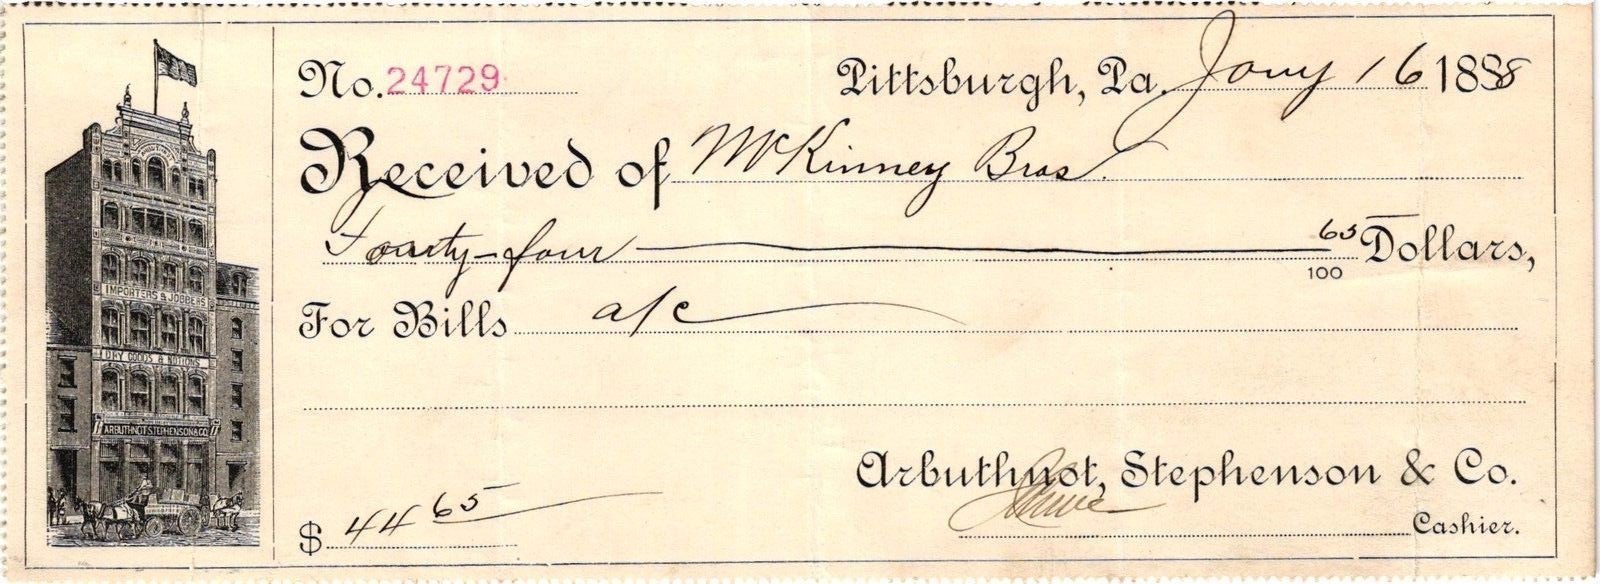 No. 24729
Pittsburgh, Pa. Jany 16 1888
Received of McKinney Bros.
Fourty-four 65/100 Dollars,
For Bills a/c
Arbuthnot, Stephenson & Co.
Cashier.
$ 44 65
IMPORTERS & JOBBERS
DRY GOODS & NOTIONS
ARBUTHNOT STEPHENSON & CO.